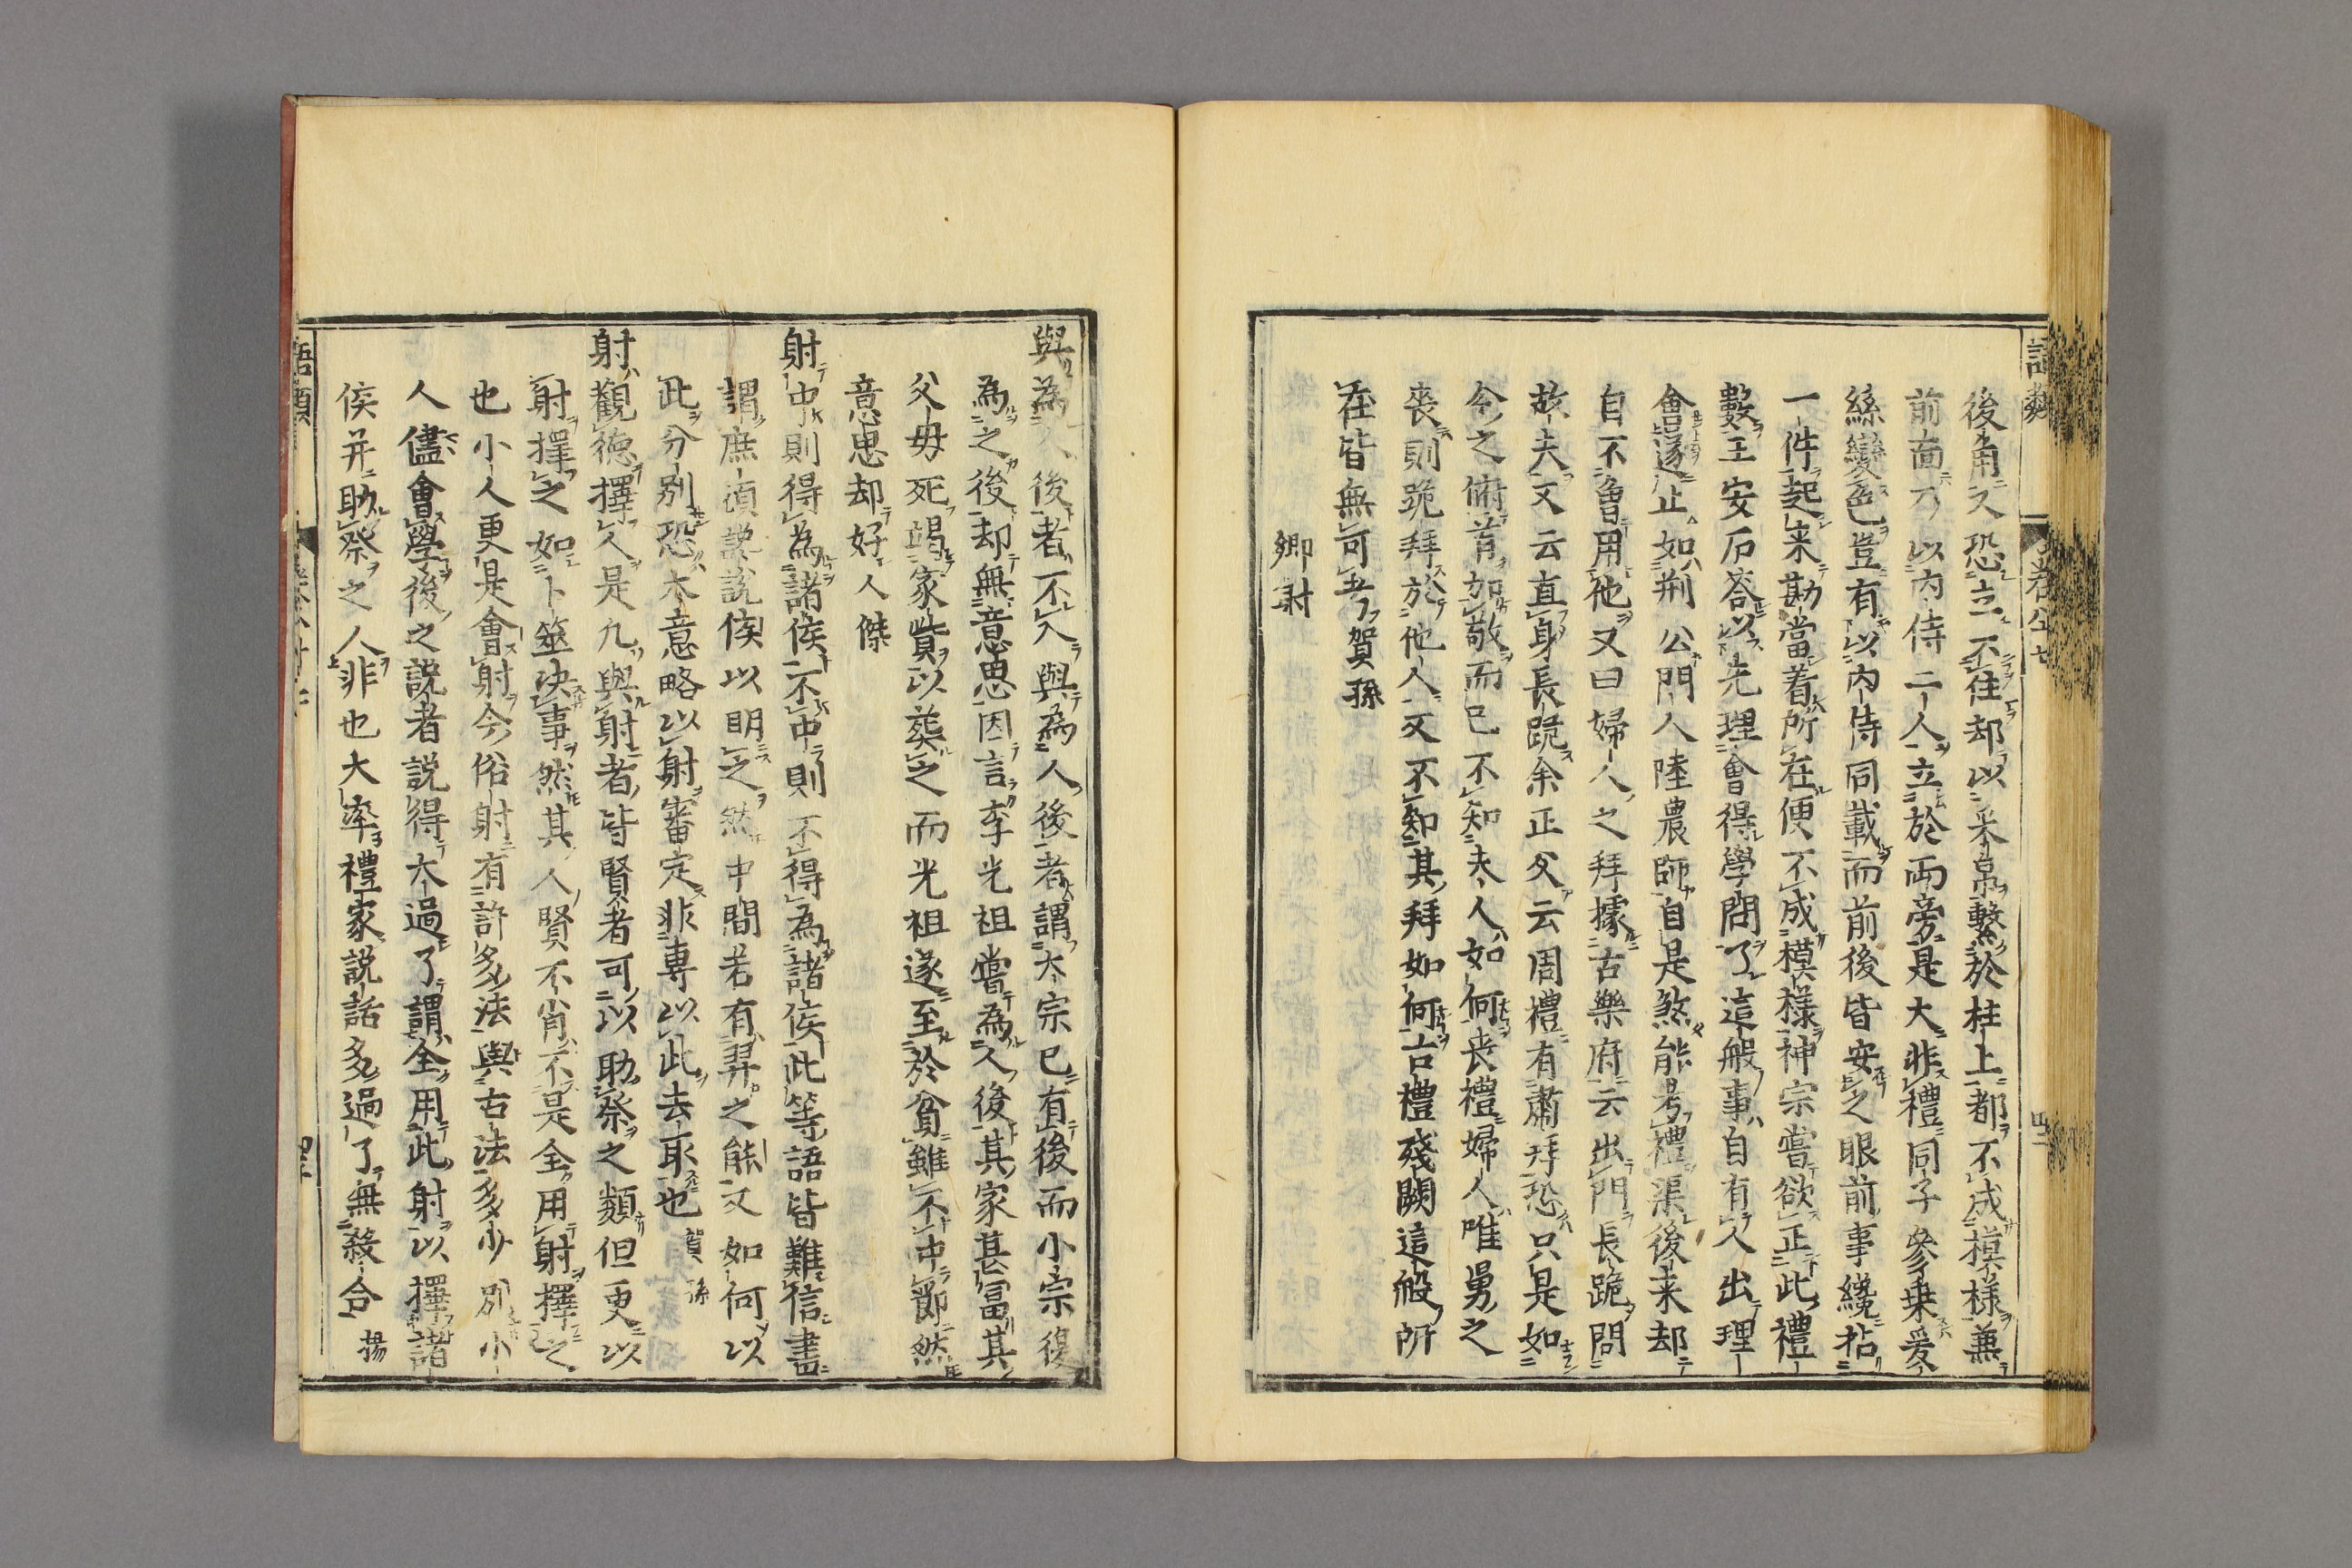 語類
卷八十七
後角又恐立不住却以采帛繫於柱上都不成摸樣兼
前面乃以内侍二人立於兩旁是大非禮同子參乗爰
絲變色豈有以内侍同載而前後皆安之眼前事纔拈
一件起来勘當着所在便不成模様神宗嘗欲正此禮
數王安石答以先理會得學問了這般事自有人出理
會遂止如荆公門人陸農師自是煞能考禮渠後来却
自不會用他又曰婦人之拜據古樂府云出門長跪問
故夫又云直身長跪余正父云周禮有肅拜恐只是如
今之俯首加敬而已不知夫人如何喪禮婦人唯舅之
喪則跪拜於他人又不知其拜如何古禮殘闕這般所
在皆無可考賀孫
鄉射
與為人後者不入與為人後者謂大宗已有後而小宗復
為之後却無意思因言李光祖嘗為人後其家甚富其
父毋死竭家貲以葬之而光祖遂至於貧雖不中節然
意思却好人傑
射中則得為諸侯不中則不得為諸侯此等語皆難信書
謂庶頑讒說侯以明之然中間若有羿之能又如何以
此分别恐大意略以射審定非專以此去取也賀孫
射觀徳擇人是凡與射者皆賢者可以助祭之類但更以
射擇之如卜筮决事然其人賢不肖不是全用射擇之
也小人更是會射今俗射有許多法與古法多少别小
人儘會學後之說者說得太過了謂全用此射以擇諸
侯并助祭之人非也大率禮家說話多過了無殺合揚
語類